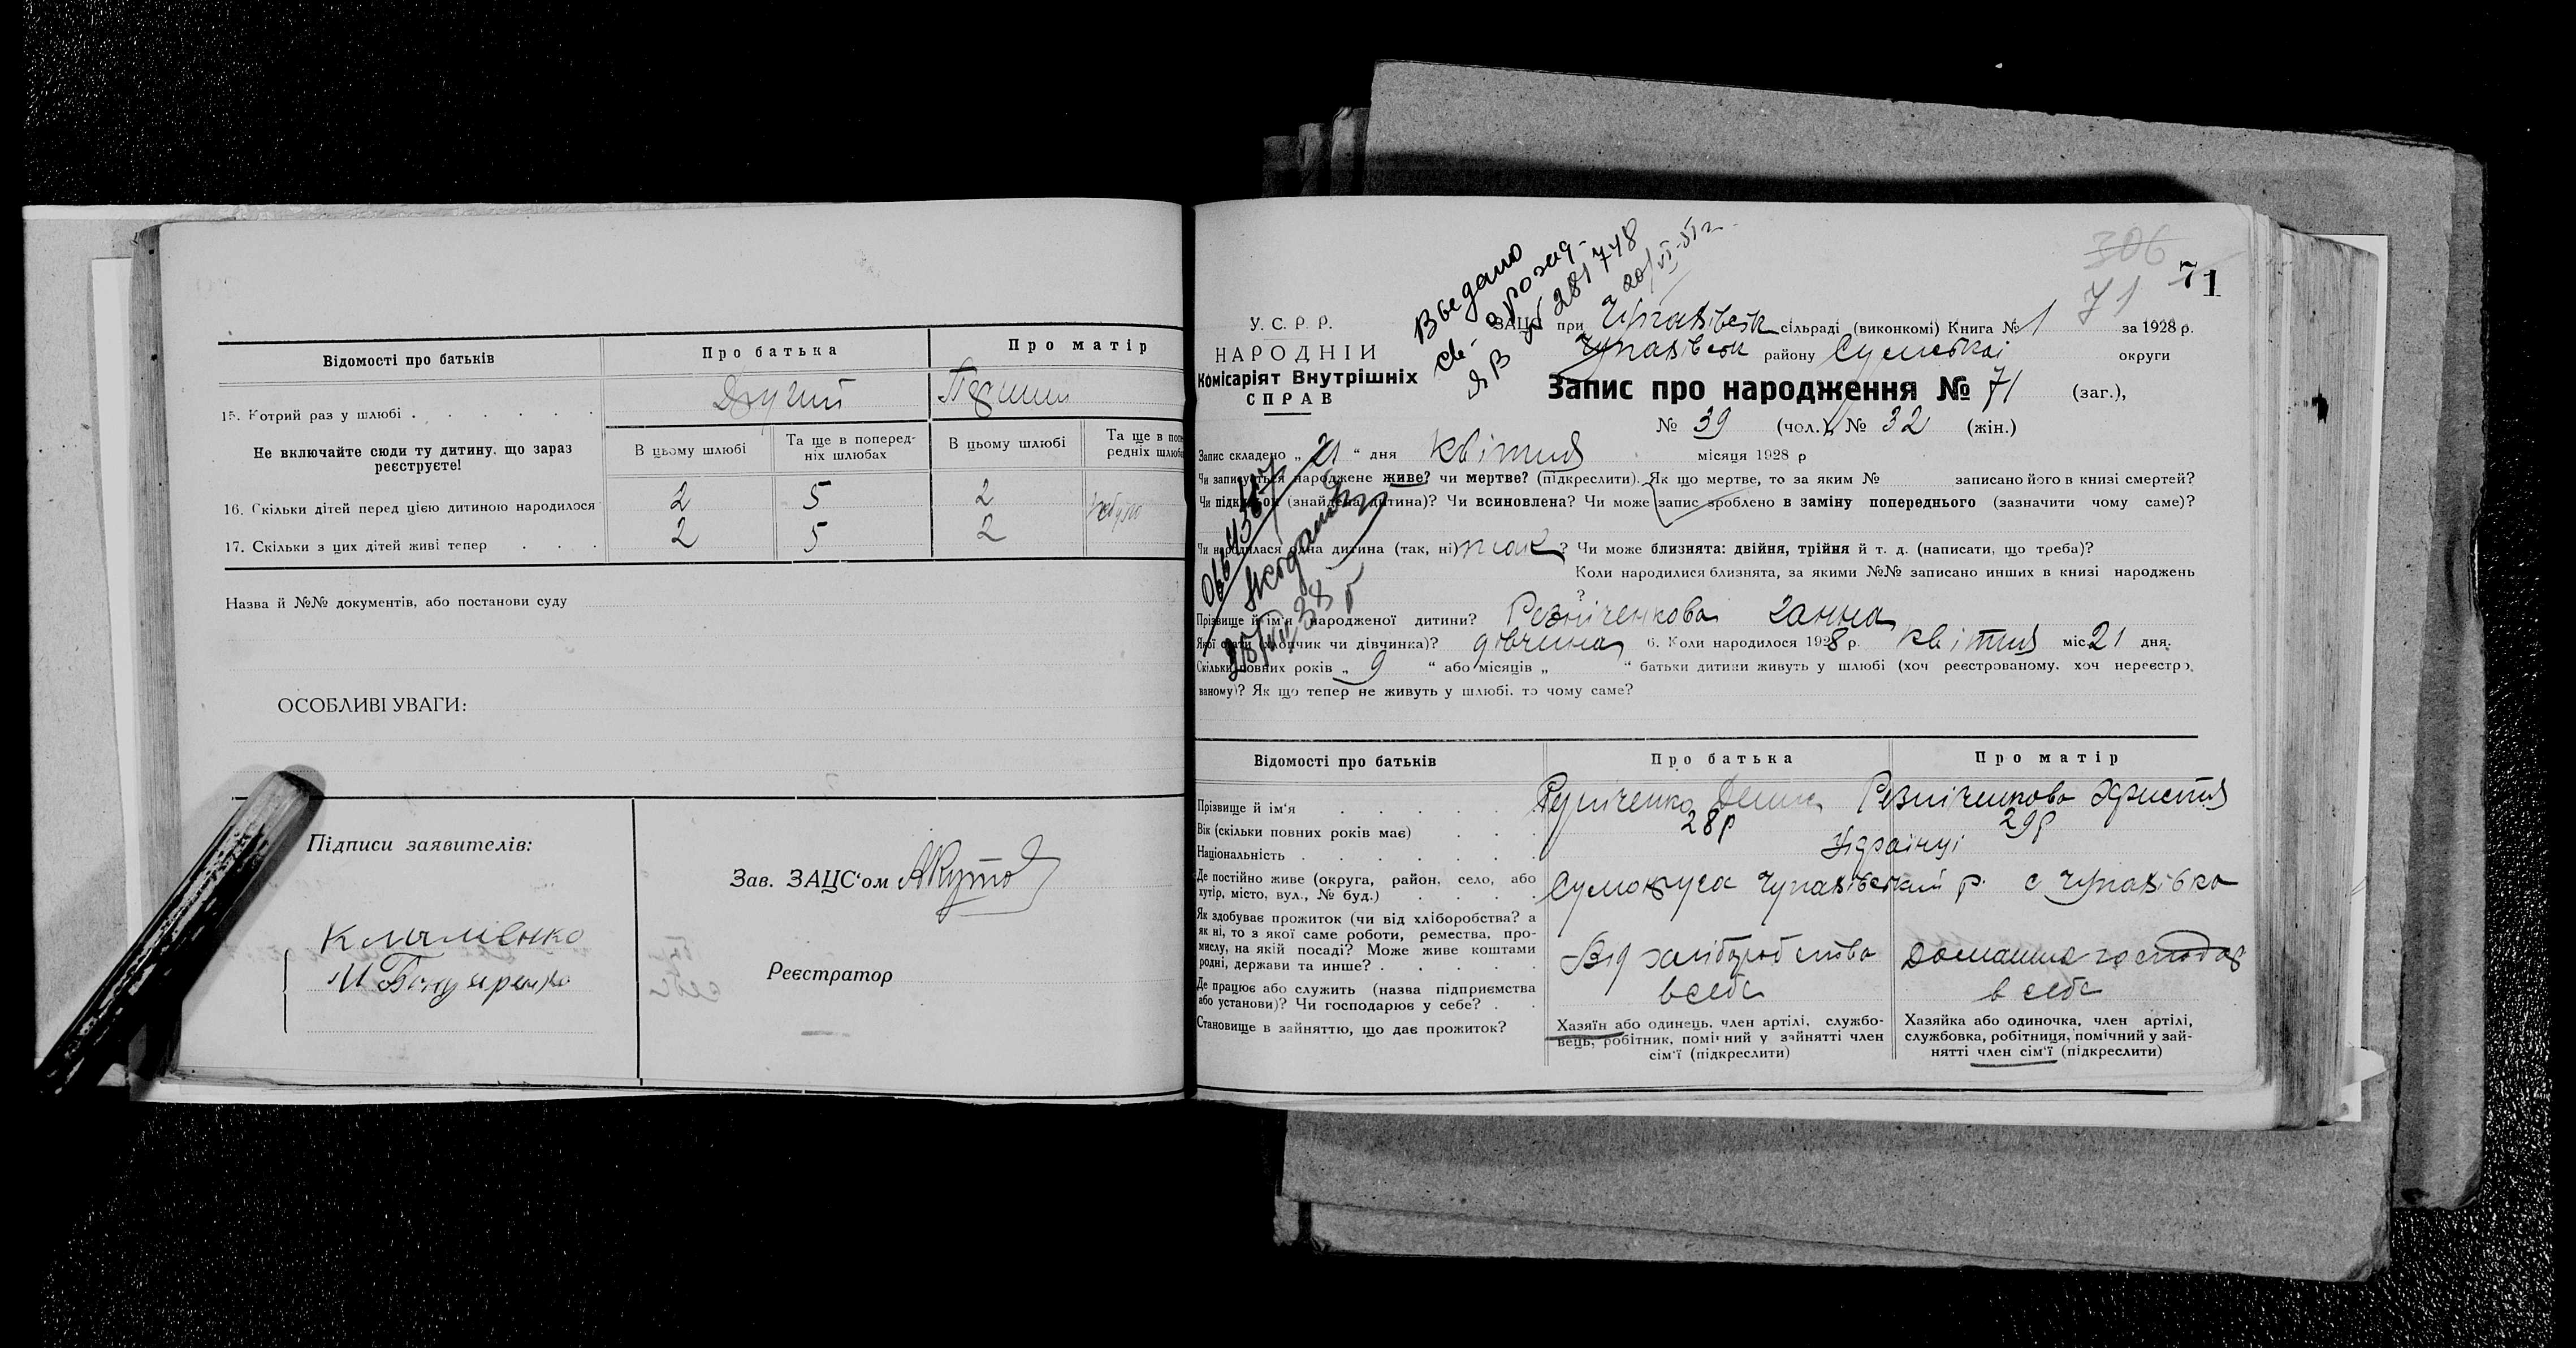 Відомості про батьків
Про батька
Про матір
15. Котрий раз у шлюбі
Другий
Перший
Не включайте сюди ту дитину, що зараз реєструєте!
В цьому шлюбі
Та ще в поперед-
ніх шлюбах
В цьому шлюбі
Та ще в попе
редніх шлюба
16. Скільки дітей перед цією дитиною народилося
2
5
2
17. Скільки з цих дітей живі тепер
2
5
2
Назва й №№ документів, або постанови суду
ОСОБЛИВІ УВАГИ:
Підписи заявителів:
Зав. ЗАЦС'ом
Реєстратор
М Бондаренко
306
71
71
У. С. Р. Р.
НАРОДНІЙ
Комісаріят Внутрішніх
СПРАВ
281748
ЗАЦС при Чупахівськ сільраді (виконкомі) Книга № 1 за 1928 р.
Чупахівськ району Сумської округи
Запис про народження № 71 (заг.),
№ 39 (чол.), № 32 (жін.)
Запис складено „ 21 “ дня квітня місяця 1928 р
Чи записується народжене живе? чи мертве? (підкреслити). Як що мертве, то за яким № записано його в книзі смертей?
Чи підкидьок (знайдена дитина)? Чи всиновлена? Чи може запис зроблено в заміну попереднього (зазначити чому саме)?
Чи народилася одна дитина (так, ні) так ? Чи може близнята: двійня, трійня й т. д. (написати, що треба)?
Коли народилися близнята, за якими №№ записано инших в книзі народжень
?
Прізвище й ім'я народженої дитини? Резніченкова Ганна
Якої стати (хлопчик чи дівчинка)? дівчина 6. Коли народилося 1928 р. квітня міс. 21 дня.
Скільки повних років „ 9 “ або місяців „ “ батьки дитини живуть у шлюбі (хоч реєстрованому, хоч нереєстро-
ваному)? Як що тепер не живуть у шлюбі, то чому саме?
Відомості про батьків
Про батька
Про матір
Прізвище й ім'я
Резніченкова Христя
Вік (скільки повних років має)
28р
29р
Національність
Українці
Де постійно живе (округа, район, село, або
хутір, місто, вул., № буд.)
Чупахівський р. с Чупахівка
Як здобуває прожиток (чи від хліборобства? а
як ні, то з якої саме роботи, ремества, про-
мислу, на якій посаді? Може живе коштами
родні, держави та инше?
Від хліборобства
Домашнє господар
Де працює або служить (назва підприємства
або установи)? Чи господарює у себе?
в себе
в себе
Становище в зайняттю, що дає прожиток?
Хазяїн або одинець, член артілі, службо-
вець, робітник, помічний у зайнятті член
сім'ї (підкреслити)
Хазяйка або одиночка, член артілі,
службовка, робітниця, помічний у зай-
нятті член сім'ї (підкреслити)